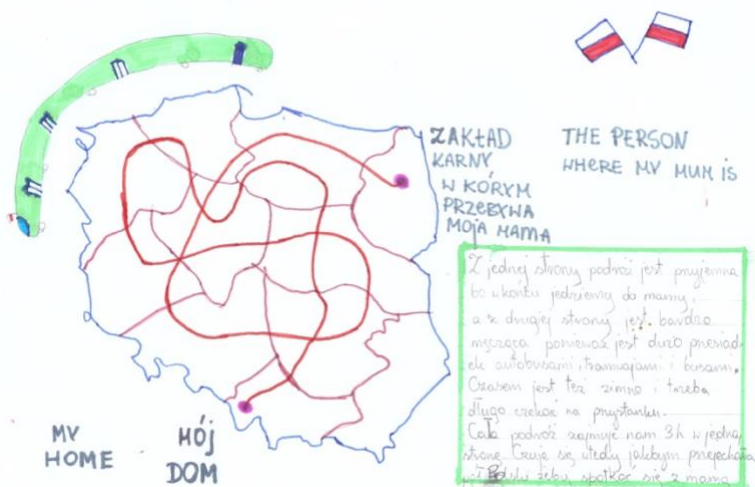 ZAKŁAD
KARNY
W KÓRYM
PRZEBYWA
MOJA MAMA
THE PERSON
WHERE MY MUM IS
Z jednej strony podróż jest przyjemna
bo w końcu jedziemy do mamy,
a z drugiej strony jest bardzo
męcząca ponieważ jest dużo przesiad-
ek autobusami, tramwajami i busami.
Czasem jest też zimno i trzeba
długo czekać na przystanku.
Cała podróż zajmuje nam 3h w jedną
stronę. Czuję się wtedy jakbym przejechała
Polski żeby spotkać się z mamą
MY
HOME
MÓJ
DOM